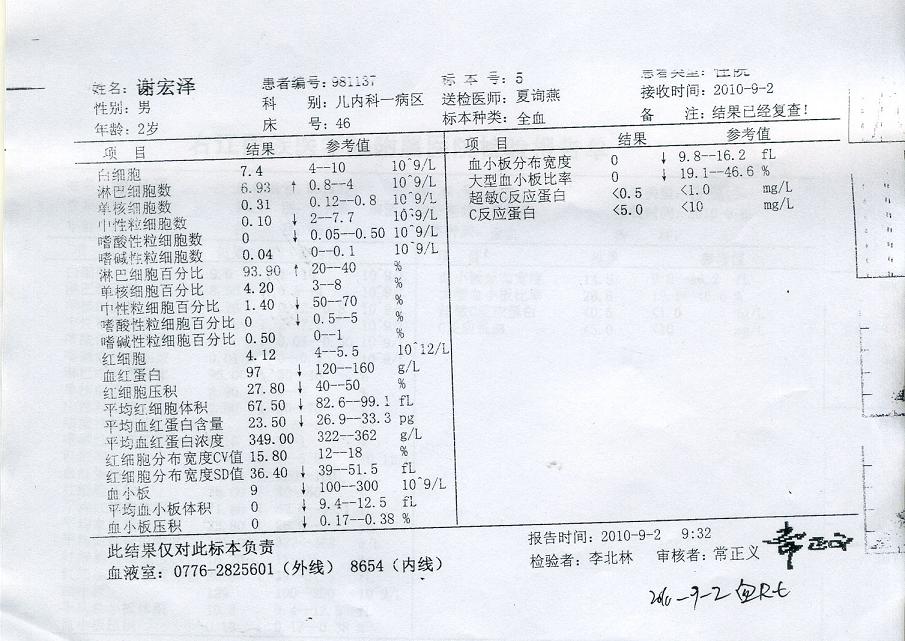 姓名：谢宏泽 患者编号：981137 标本号：5 患者类型：住院
性别：男 科别：儿内科一病区 送检医师：夏询燕 接收时间：2010-9-2
年龄：2岁 床号：46 标本种类：全血 备注：结果已经复查！
项目 结果 参考值 项目 结果 参考值
白细胞 7.4 4--10 10^9/L
淋巴细胞数 6.93 ↑ 0.8--4 10^9/L
单核细胞数 0.31 0.12--0.8 10^9/L
中性粒细胞数 0.10 ↓ 2--7.7 10^9/L
嗜酸性粒细胞数 0 ↓ 0.05--0.50 10^9/L
嗜碱性粒细胞数 0.04 0--0.1 10^9/L
淋巴细胞百分比 93.90 ↑ 20--40 %
单核细胞百分比 4.20 3--8 %
中性粒细胞百分比 1.40 ↓ 50--70 %
嗜酸性粒细胞百分比 0 ↓ 0.5--5 %
嗜碱性粒细胞百分比 0.50 0--1 %
红细胞 4.12 4--5.5 10^12/L
血红蛋白 97 ↓ 120--160 g/L
红细胞压积 27.80 ↓ 40--50 %
平均红细胞体积 67.50 ↓ 82.6--99.1 fL
平均血红蛋白含量 23.50 ↓ 26.9--33.3 pg
平均血红蛋白浓度 349.00 322--362 g/L
红细胞分布宽度CV值 15.80 12--18 %
红细胞分布宽度SD值 36.40 ↓ 39--51.5 fL
血小板 9 ↓ 100--300 10^9/L
平均血小板体积 0 ↓ 9.4--12.5 fL
血小板压积 0 ↓ 0.17--0.38 %
血小板分布宽度 0 ↓ 9.8--16.2 fL
大型血小板比率 0 ↓ 19.1--46.6 %
超敏C反应蛋白 <0.5 <1.0 mg/L
C反应蛋白 <5.0 <10 mg/L
此结果仅对此标本负责
血液室：0776-2825601（外线） 8654（内线）
报告时间：2010-9-2 9:32
检验者：李北林 审核者：常正义 常正义
2010-9-2 血Rt